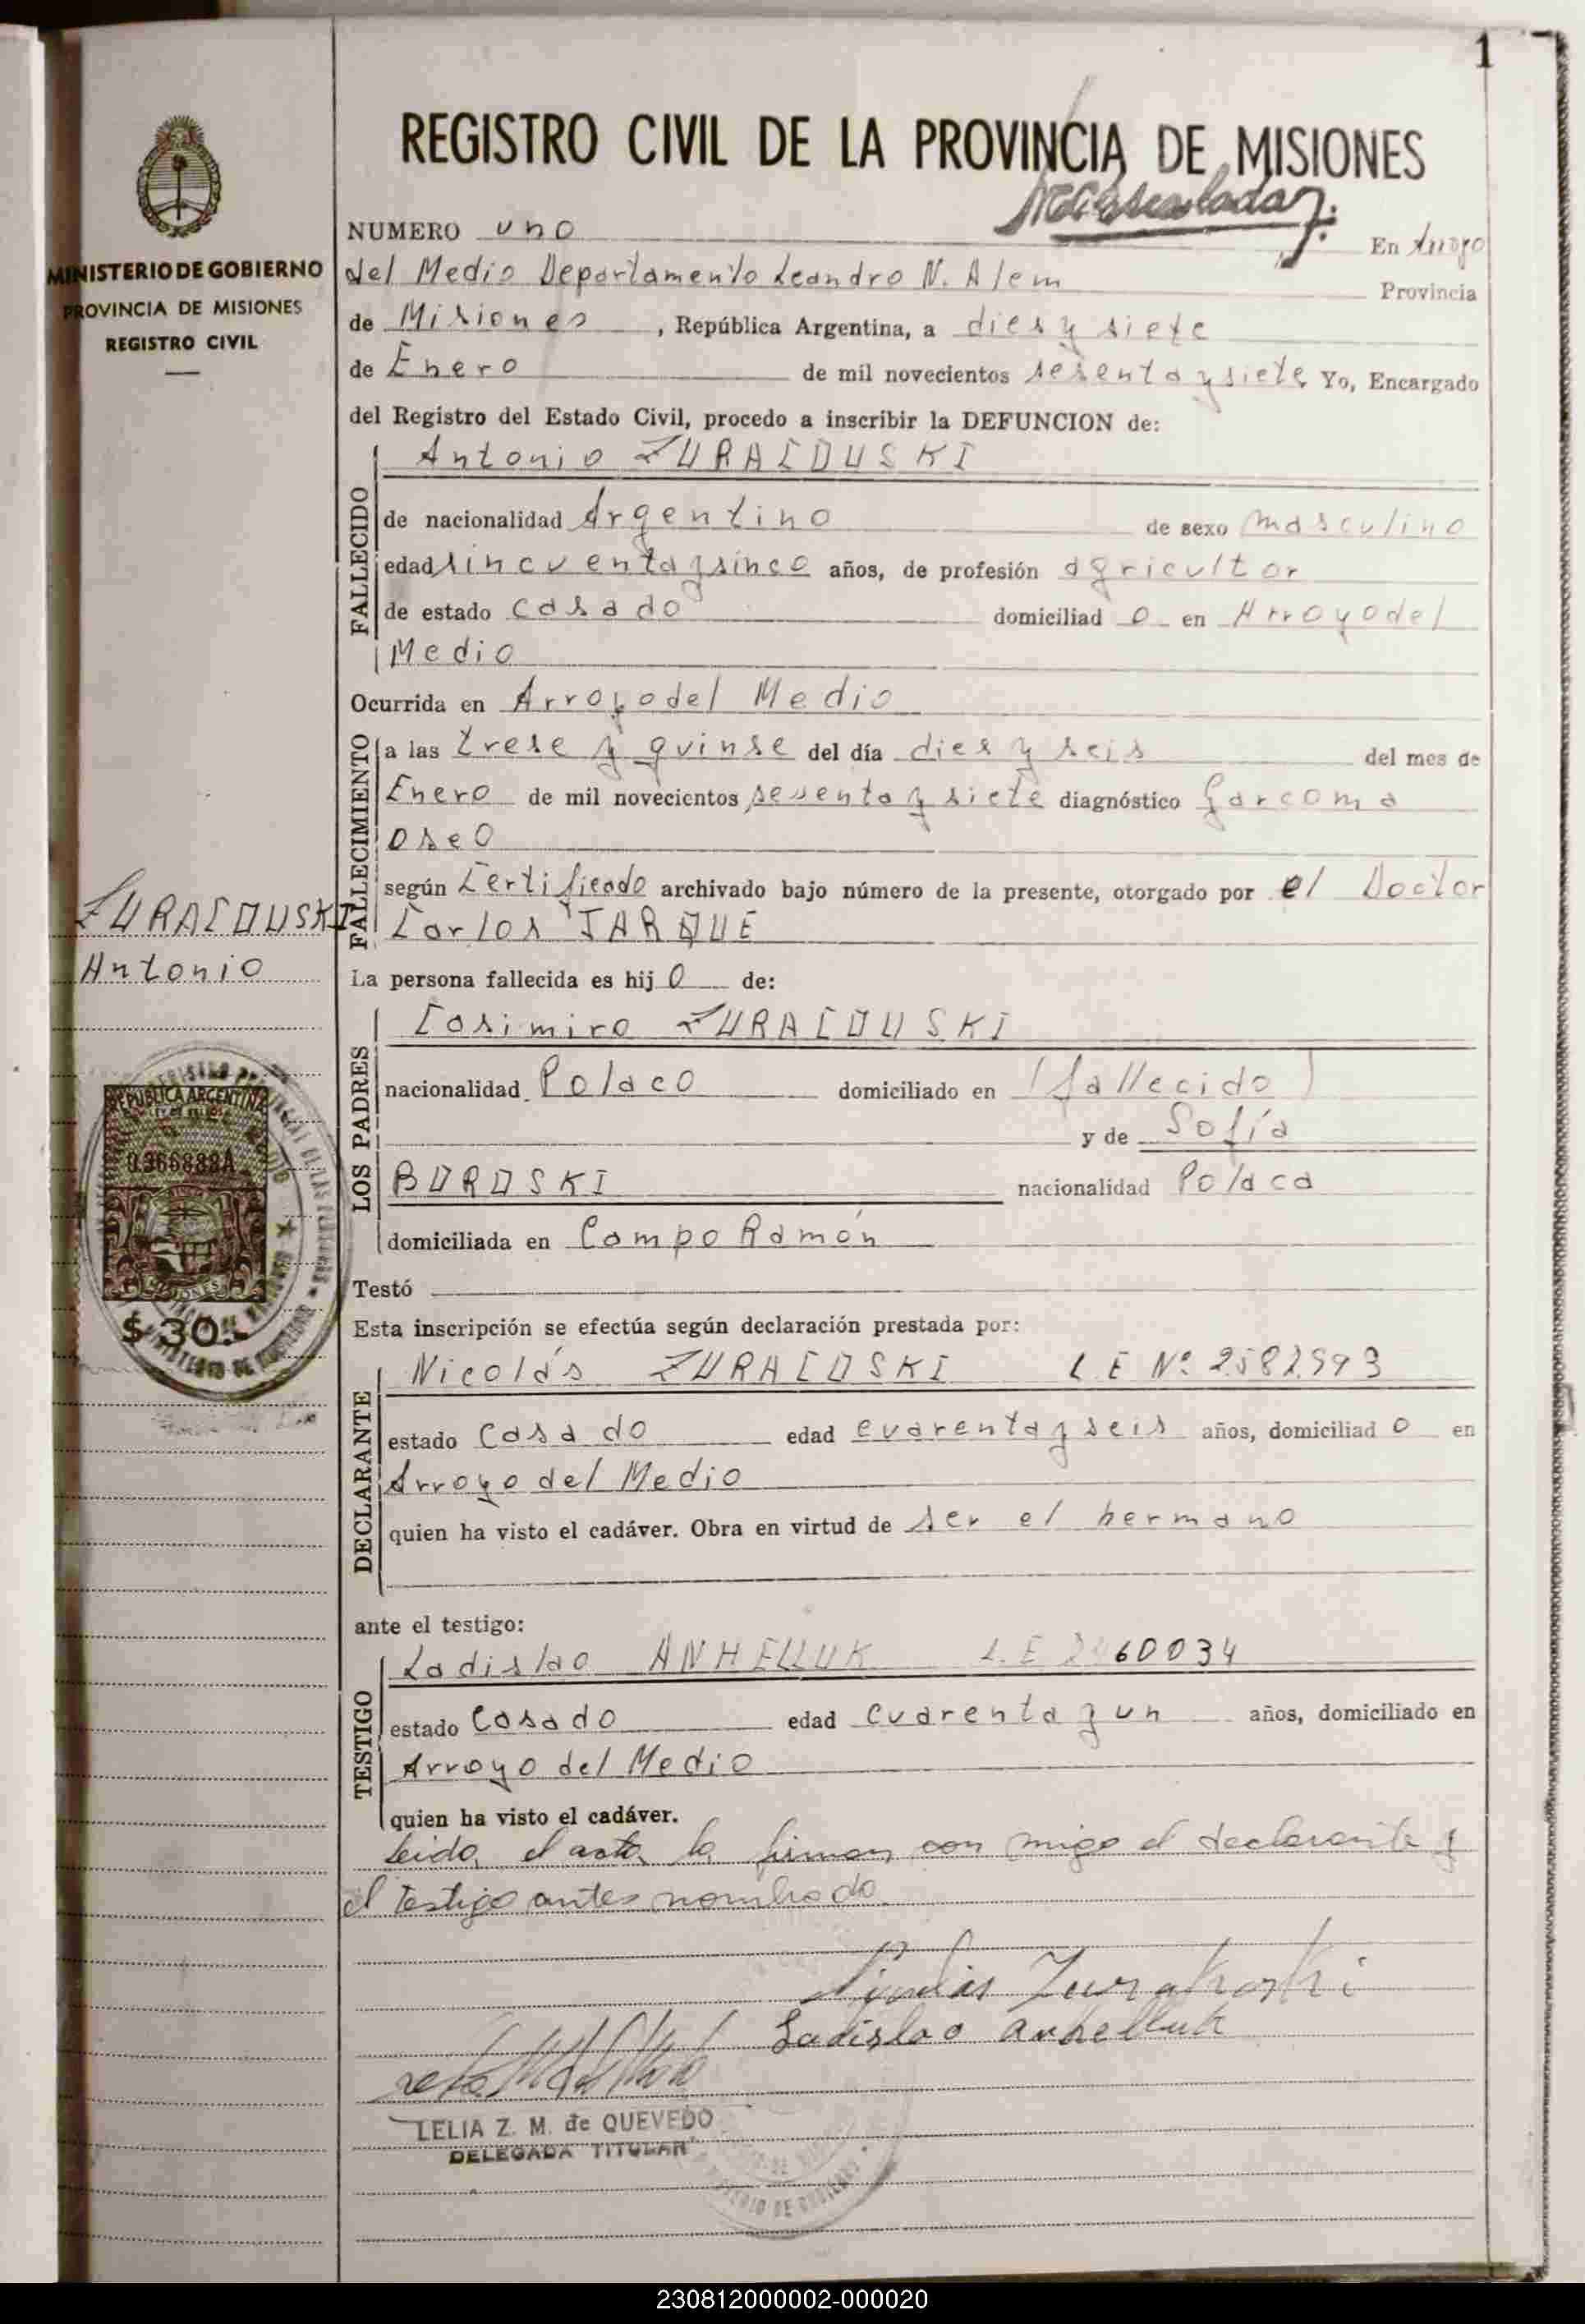 1
REGISTRO CIVIL DE LA PROVINCIA DE MISIONES
MINISTERIO DE GOBIERNO
PROVINCIA DE MISIONES
REGISTRO CIVIL
NUMERO uno En Arroyo
del Medio Departamento Leandro N. Alem Provincia
de Misiones, República Argentina, a dies y siete
de Enero de mil novecientos sesenta y siete Yo, Encargado
del Registro del Estado Civil, procedo a inscribir la DEFUNCION de:
FALLECIDO
Antonio ZURACOUSKI
de nacionalidad Argentino de sexo masculino
edad sincuenta y sinco años, de profesión agricultor
de estado casado domiciliad o en Arroyo del
Medio
Ocurrida en Arroyo del Medio
FALLECIMIENTO
a las trese y quinse del día dies y seis del mes de
Enero de mil novecientos sesenta y siete diagnóstico Sarcoma
oseo
según Certificado archivado bajo número de la presente, otorgado por el Doctor
Carlos JARQUE
ZURACOUSKI
Antonio
La persona fallecida es hij o de:
LOS PADRES
Casimiro ZURACOUSKI
nacionalidad Polaco domiciliado en (fallecido)
y de Sofía
BOROSKI nacionalidad Polaca
domiciliada en Campo Ramón
REPUBLICA ARGENTINA
LEY DE SELLOS
MISIONES
$ 30.-
Testó
Esta inscripción se efectúa según declaración prestada por:
DECLARANTE
Nicolás ZURACOSKI L E Nº 2582593
estado Casado edad cuarenta y seis años, domiciliad o en
Arroyo del Medio
quien ha visto el cadáver. Obra en virtud de ser el hermano
ante el testigo:
TESTIGO
Ladislao ANHELLUK L.E 60034
estado Casado edad cuarenta y un años, domiciliado en
Arroyo del Medio
quien ha visto el cadáver.
Leida el acta la firman con migo el declarante y
el testigo antes nombrado
Zurakoski
Ladislao Anhelluk
LELIA Z. M. de QUEVEDO
DELEGADA TITULAR
230812000002-000020